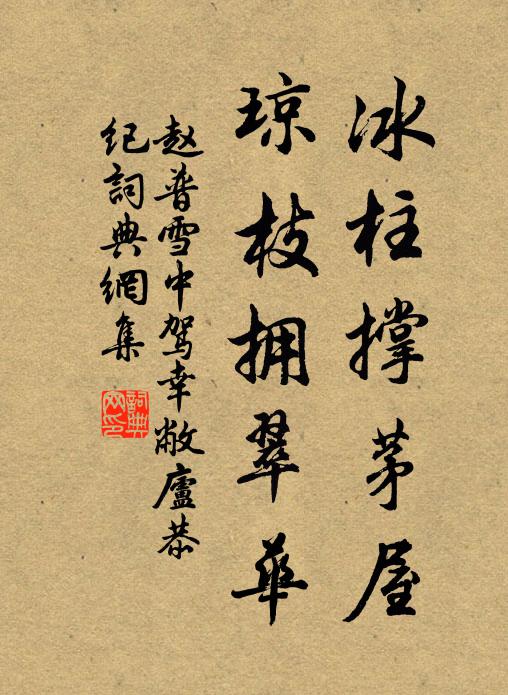 冰柱撑茅屋
琼枝拥翠华
赵普雪中驾幸敝廬恭
纪詞典網集
詞典
网印